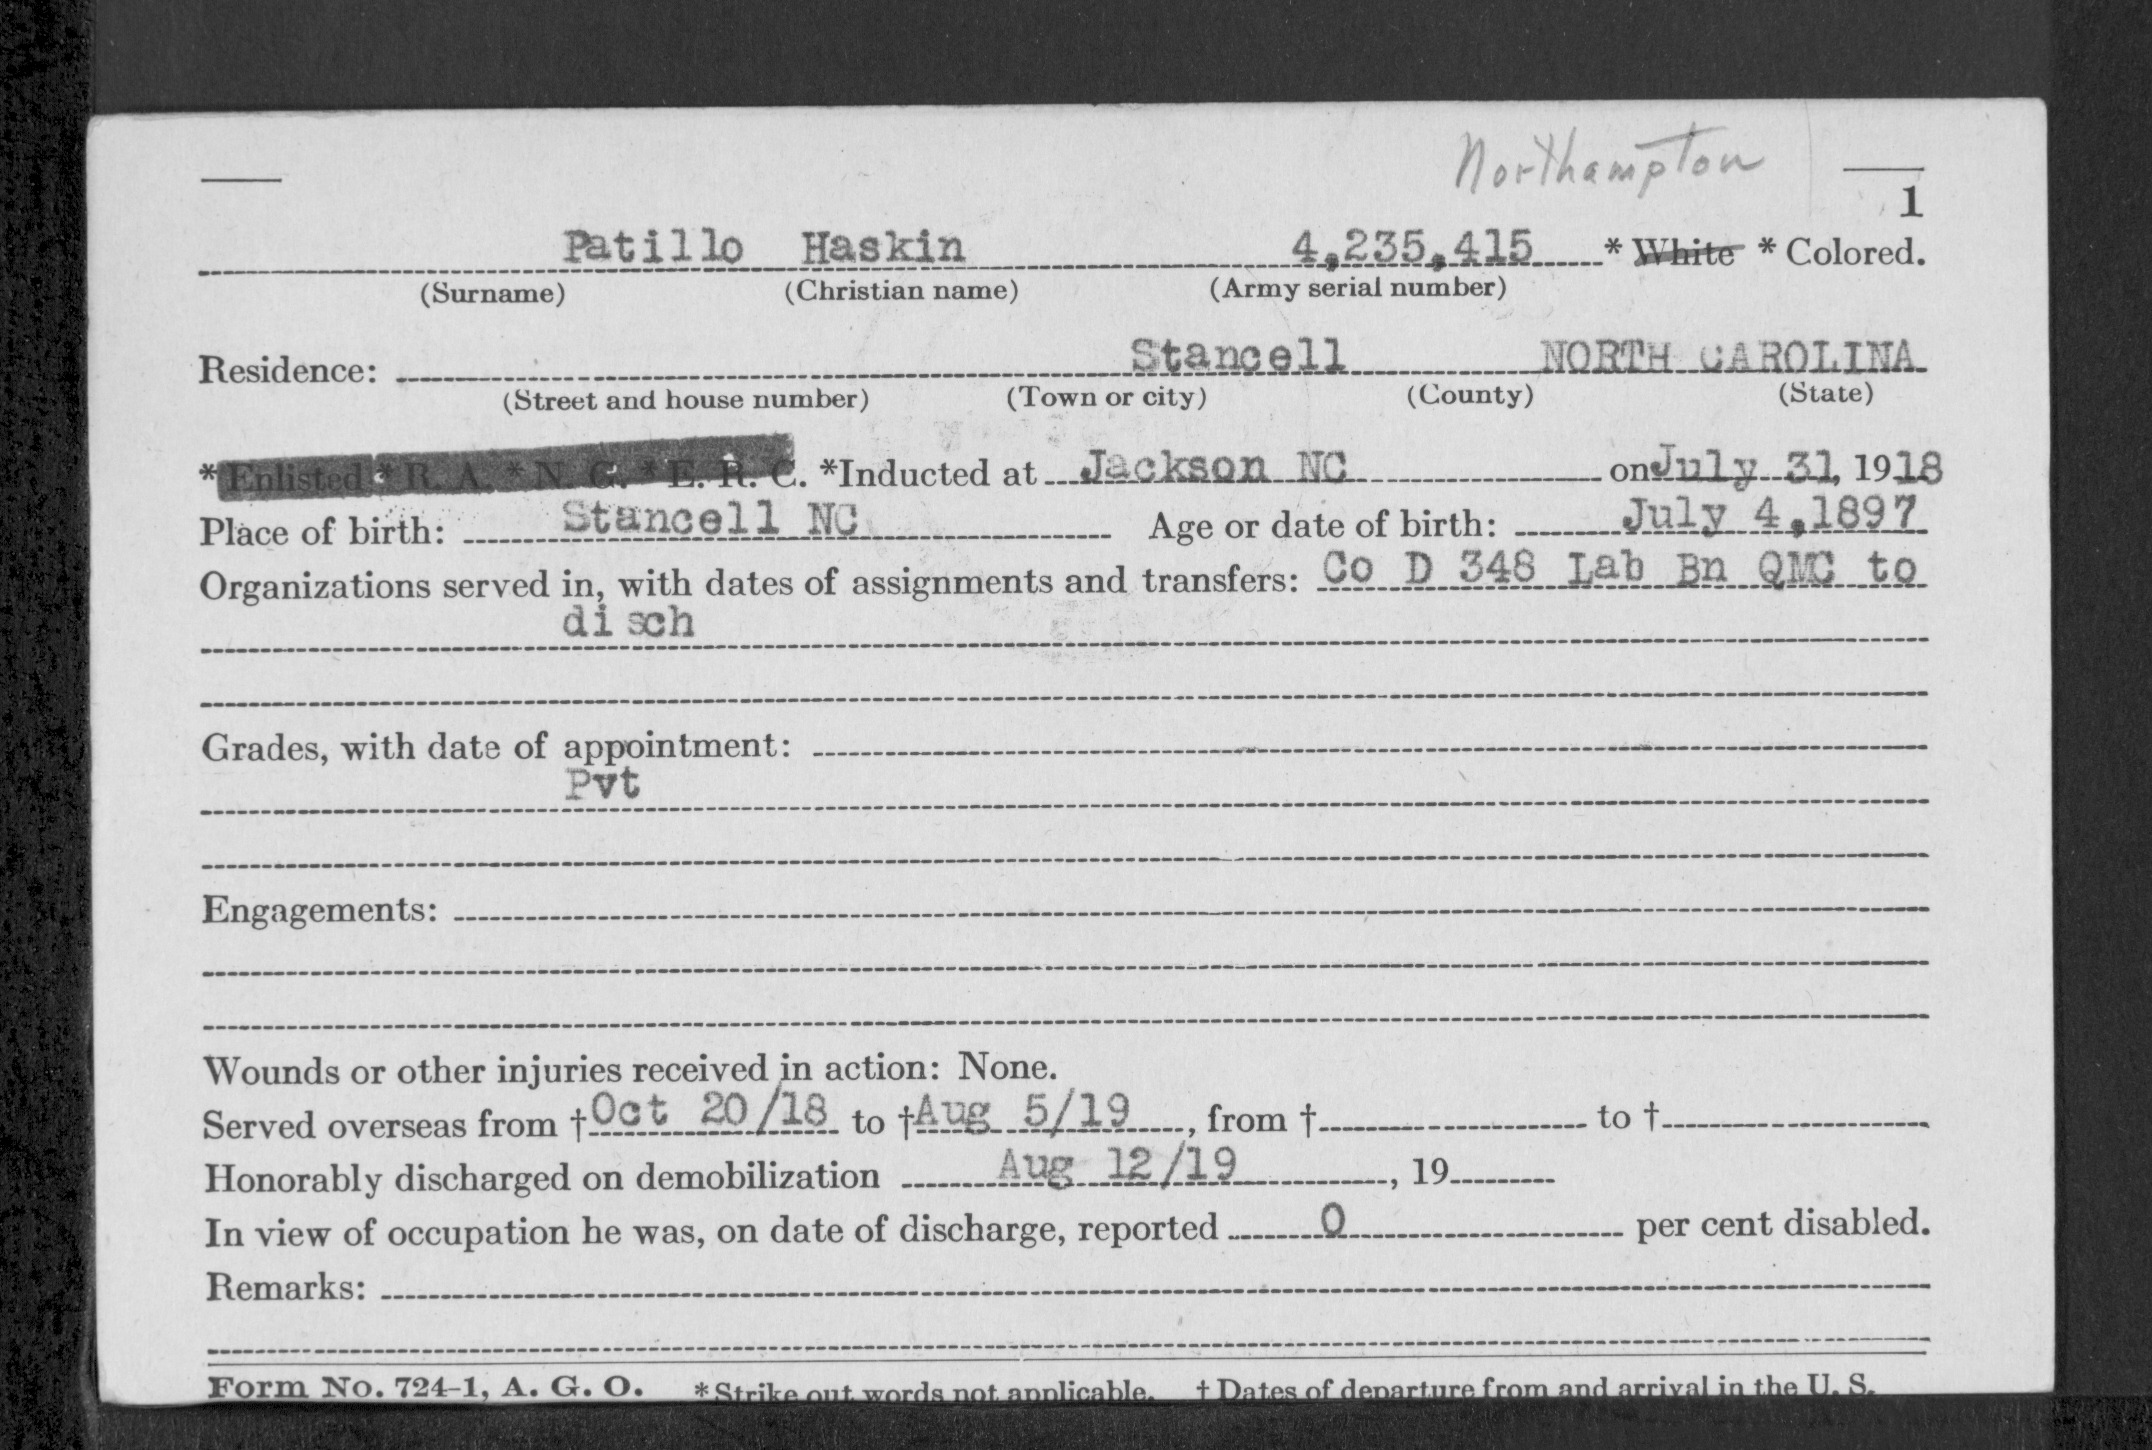 Northampton
1
Patillo Haskin 4,235,415 * White * Colored.
(Surname) (Christian name) (Army serial number)
Residence: Stancell NORTH CAROLINA
(Street and house number) (Town or city) (County) (State)
*Enlisted *R. A. *N. G. *E. R. C. *Inducted at Jackson NC on July 31, 1918
Place of birth: Stancell NC Age or date of birth: July 4,1897
Organizations served in, with dates of assignments and transfers: Co D 348 Lab Bn QMC to
disch
Grades, with date of appointment:
Pvt
Engagements:
Wounds or other injuries received in action: None.
Served overseas from †Oct 20/18 to †Aug 5/19, from † to †
Honorably discharged on demobilization Aug 12/19, 19
In view of occupation he was, on date of discharge, reported 0 per cent disabled.
Remarks:
Form No. 724-1, A. G. O. *Strike out words not applicable. † Dates of departure from and arrival in the U. S.